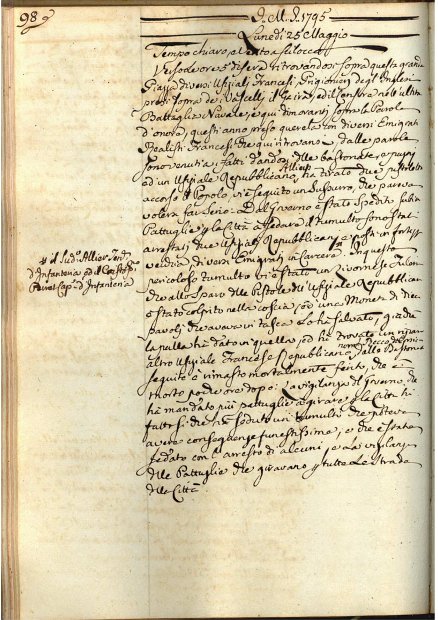 98
G. M. J. 1795
Lunedì 25 Maggio
Tempo chiaro, e Vento a Scilocco
Verso le ore 5 di sera ritrovandosi sopra questa grande
Piazza diversi Uffiziali Francesi, Prigionieri degl'Inglesi
presi sopra dei Vascelli il Sairà, ed il Sonsure nell'ultima
Battaglia Navale, e qui dimoranti sotto la Parola
d'onore, questi anno preso querela con diversi Emigrati
Realisti Francesi che qui ritrovano, dalle parole
sono venuti a fatti dandosi delle bastonate, o pugni
ed un Uffiziale Repubblicano Allier ha tirato due pistolete
accorso il Popolo vi è seguito un Susurro, che pareva
volersi far Serio. Dal Governo è stato spedito subito
Pattuglie per la Città a sedare il tumulto, sono stati
arrestati due Uffiziali Repubblicani, e messi in fortezza
vecchia diversi Emigrati in Carcere. In questo
pericoloso tumulto vi è stato un Livornese, che
dallo Sparo delle Pistole dell'Uffiziale Repubblicano
è stato colpito nella coscia, con una Moneta di dieci
paoli, che aveva in tasca lo ha salvato, quindi
la palla ha dato in quella, ed ha trovato un riparo
altro Uffiziale Francese Repubblicano dalle Bastonate
seguite è rimasto mortalmente ferito, che è
morto poche ore dopo: La vigilanza del Governo, che
ha mandato più pattuglie a girare per la Città, ha
fatto sì, che si è sedato un tumulto, che poteva
avere conseguenze funestissime, e che è stato
sedato con l'arresto di alcuni, e la vigilanza
delle Pattuglie che giravano per tutte le strade
della Città
il Sud.o Allier Ten.te
d'Infanteria ed il
Cap.no d'Infanteria